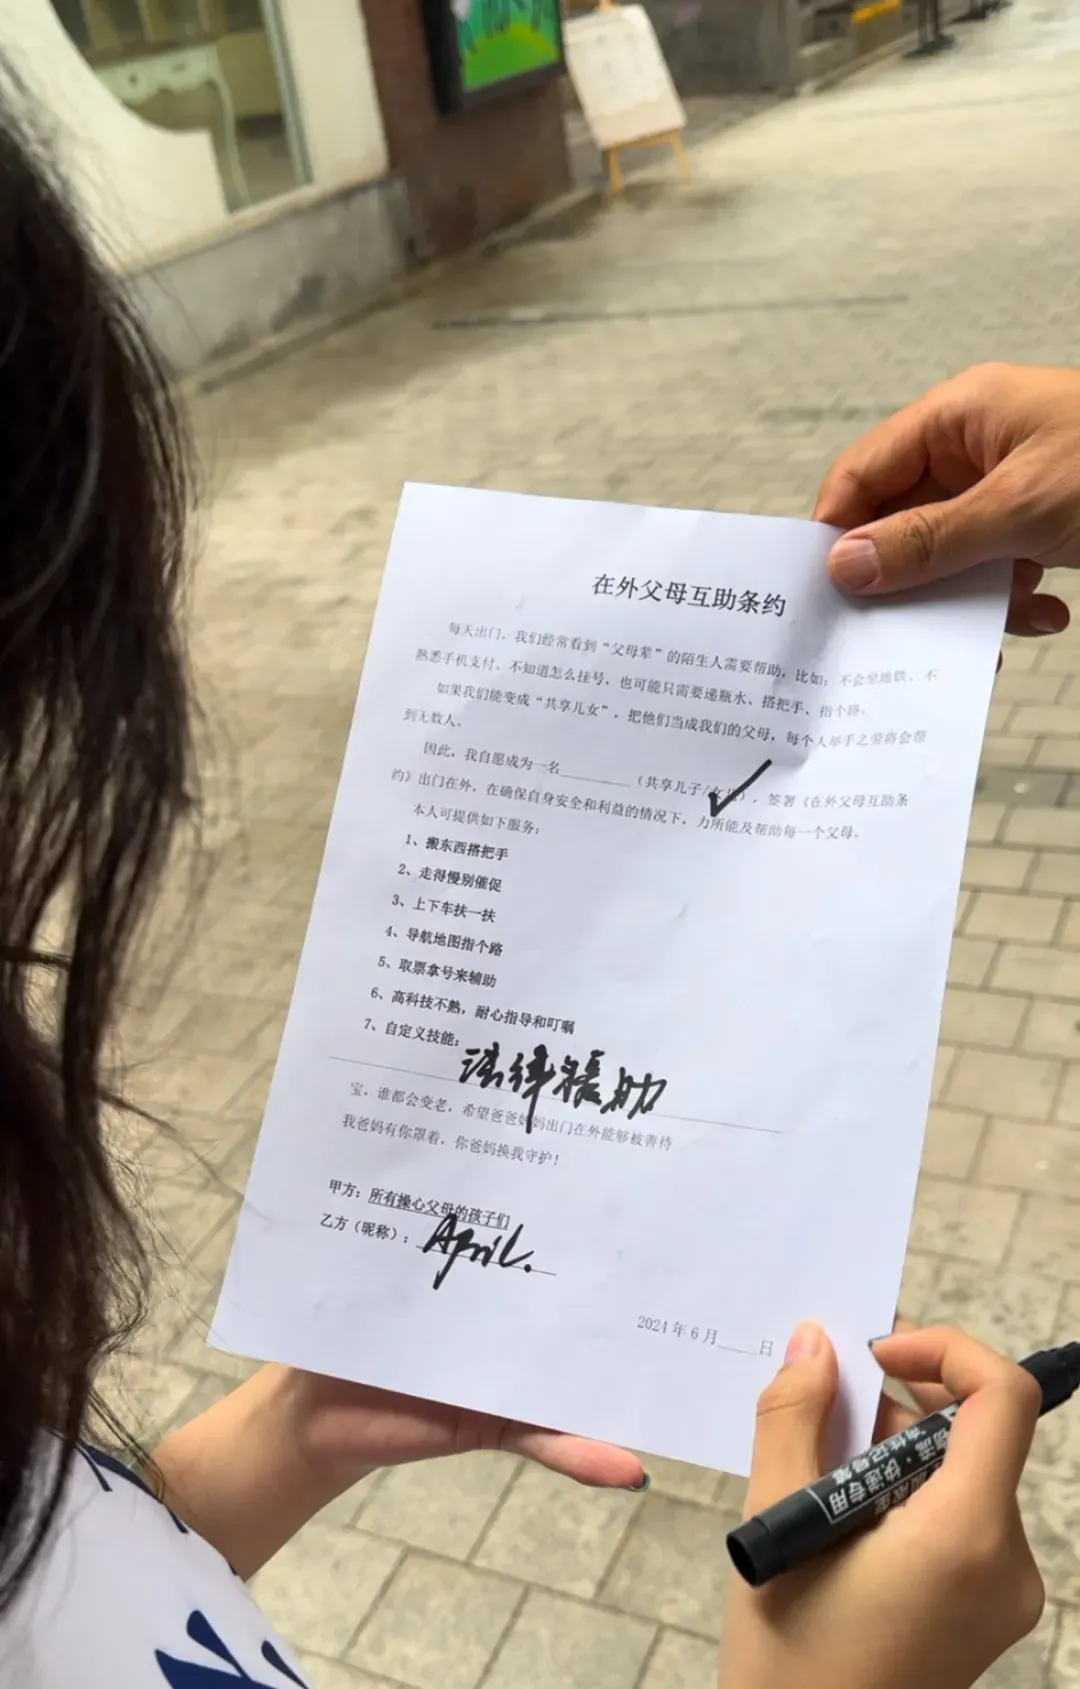 在外父母互助条约
每天出门，我们经常看到“父母辈”的陌生人需要帮助，比如：不会坐地铁、不
熟悉手机支付、不知道怎么挂号，也可能只需要递瓶水、搭把手、指个路。
如果我们能变成“共享儿女”，把他们当成我们的父母，每个人举手之劳将会帮
到无数人。
因此，我自愿成为一名________（共享儿子/女儿），签署《在外父母互助条
约》出门在外，在确保自身安全和利益的情况下，力所能及帮助每一个父母。
本人可提供如下服务：
1、搬东西搭把手
2、走得慢别催促
3、上下车扶一扶
4、导航地图指个路
5、取票拿号来辅助
6、高科技不熟，耐心指导和叮嘱
7、自定义技能：法律援助
宝，谁都会变老，希望爸爸妈妈出门在外能够被善待
我爸妈有你罩着，你爸妈换我守护！
甲方：所有操心父母的孩子们
乙方（昵称）：April.
2024年6月____日
物流·快递专用